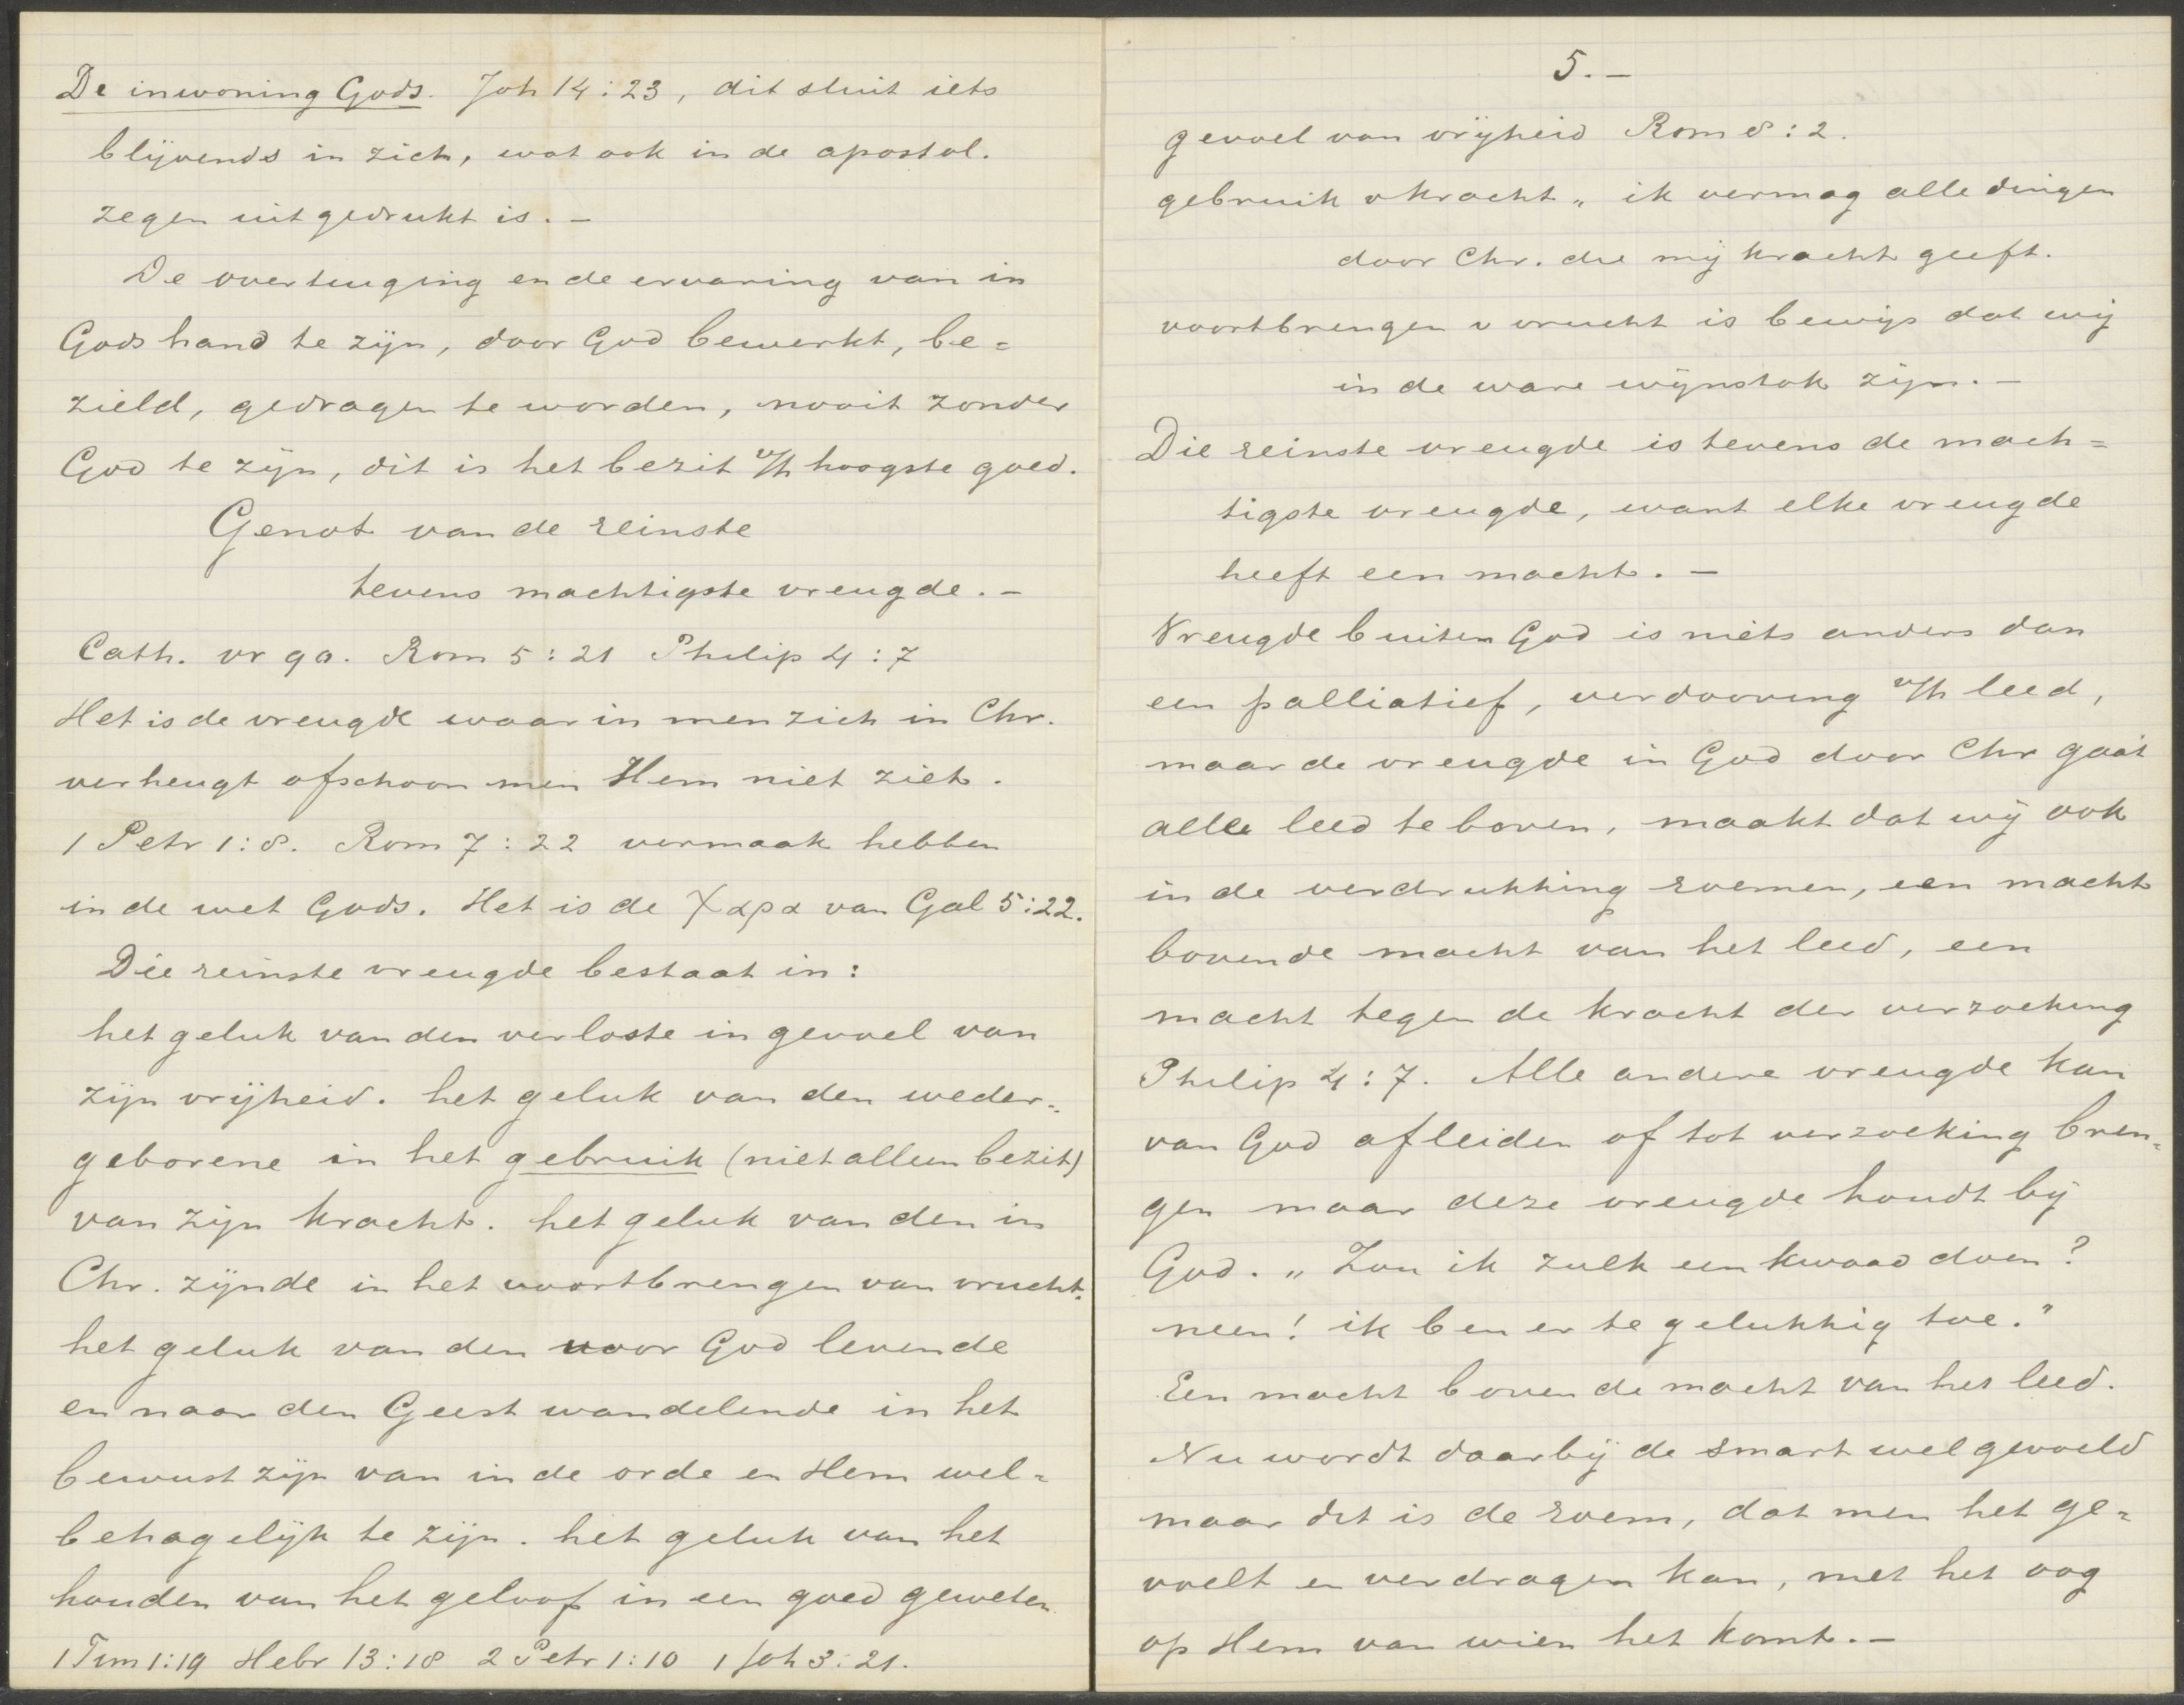 De inwoning Gods. Joh 14:23, dit sluit iets
blijvends in zich, wat ook in de apostol.
zegen uitgedrukt is. –
De overtuiging en de ervaring van in
Gods hand te zijn, door God bewerkt, be=
zield, gedragen te worden, nooit zonder
God te zijn, dit is het bezit v/h hoogste goed.
Genot van de reinste
tevens machtigste vreugde. –
Cath. vr 90. Rom 5:21 Philip 4:7
Het is de vreugde waarin men zich in Chr.
verheugt ofschoon men Hem niet ziet.
1 Petr 1:8. Rom 7:22 vermaak hebben
in de wet Gods. Het is de χαρα van Gal 5:22.
Die reinste vreugde bestaat in:
het geluk van den verloste in gevoel van
zijn vrijheid. het geluk van den weder=
geborene in het gebruik (niet alleen bezit)
van zijn kracht. het geluk van den in
Chr. zijnde in het voortbrengen van vrucht.
het geluk van den voor God levende
en naar den Geest wandelende in het
bewust zijn van in de orde en Hem wel=
behagelijk te zijn. het geluk van het
houden van het geloof in een goed geweten
1 Tim 1:19 Hebr 13:18 2 Petr 1:10 1 Joh 3:21.
5. –
gevoel van vrijheid Rom 8:2.
gebruik v kracht „ ik vermag alle dingen
door Chr. die mij kracht geeft.
voortbrengen v vrucht is bewijs dat wij
in de ware wijnstok zijn. –
Die reinste vreugde is tevens de mach=
tigste vreugde, want elke vreugde
heeft een macht. –
Vreugde buiten God is niets anders dan
een palliatief, verdooving v/h leed,
maar de vreugde in God door Chr gaat
alle leed te boven, maakt dat wij ook
in de verdrukking roemen, een macht
boven de macht van het leed, een
macht tegen de kracht der verzoeking
Philip 4:7. Alle andere vreugde kan
van God afleiden of tot verzoeking bren=
gen maar deze vreugde houdt bij
God. „ Zou ik zulk een kwaad doen?
neen! ik ben er te gelukkig toe."
Een macht boven de macht van het leed.
Nu wordt daarbij de smart wel gevoeld
maar dit is de roem, dat men het ge=
voelt en verdragen kan, met het oog
op Hem van wien het komt. –